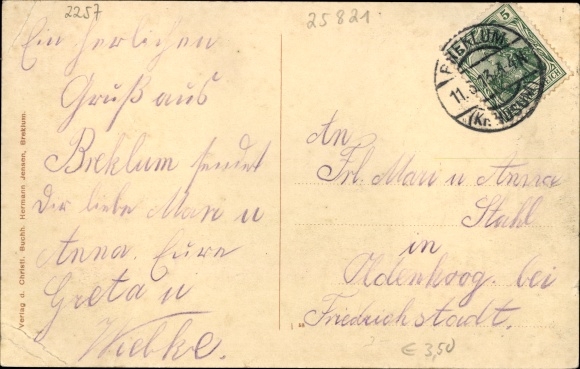 2257
25821
Ein herlichen
Gruß aus
Breklum sendet
Dir liebe Mari u
Anna. Eure
Greta u
Wiebke.
Verlag d. Christl. Buchh. Hermann Jensen, Breklum.
BREKLUM
11.8.13
5
REICH
An
Frl. Mari u Anna
Stahl
in
Oldenkoog. bei
Friedrichstadt.
€ 3,50